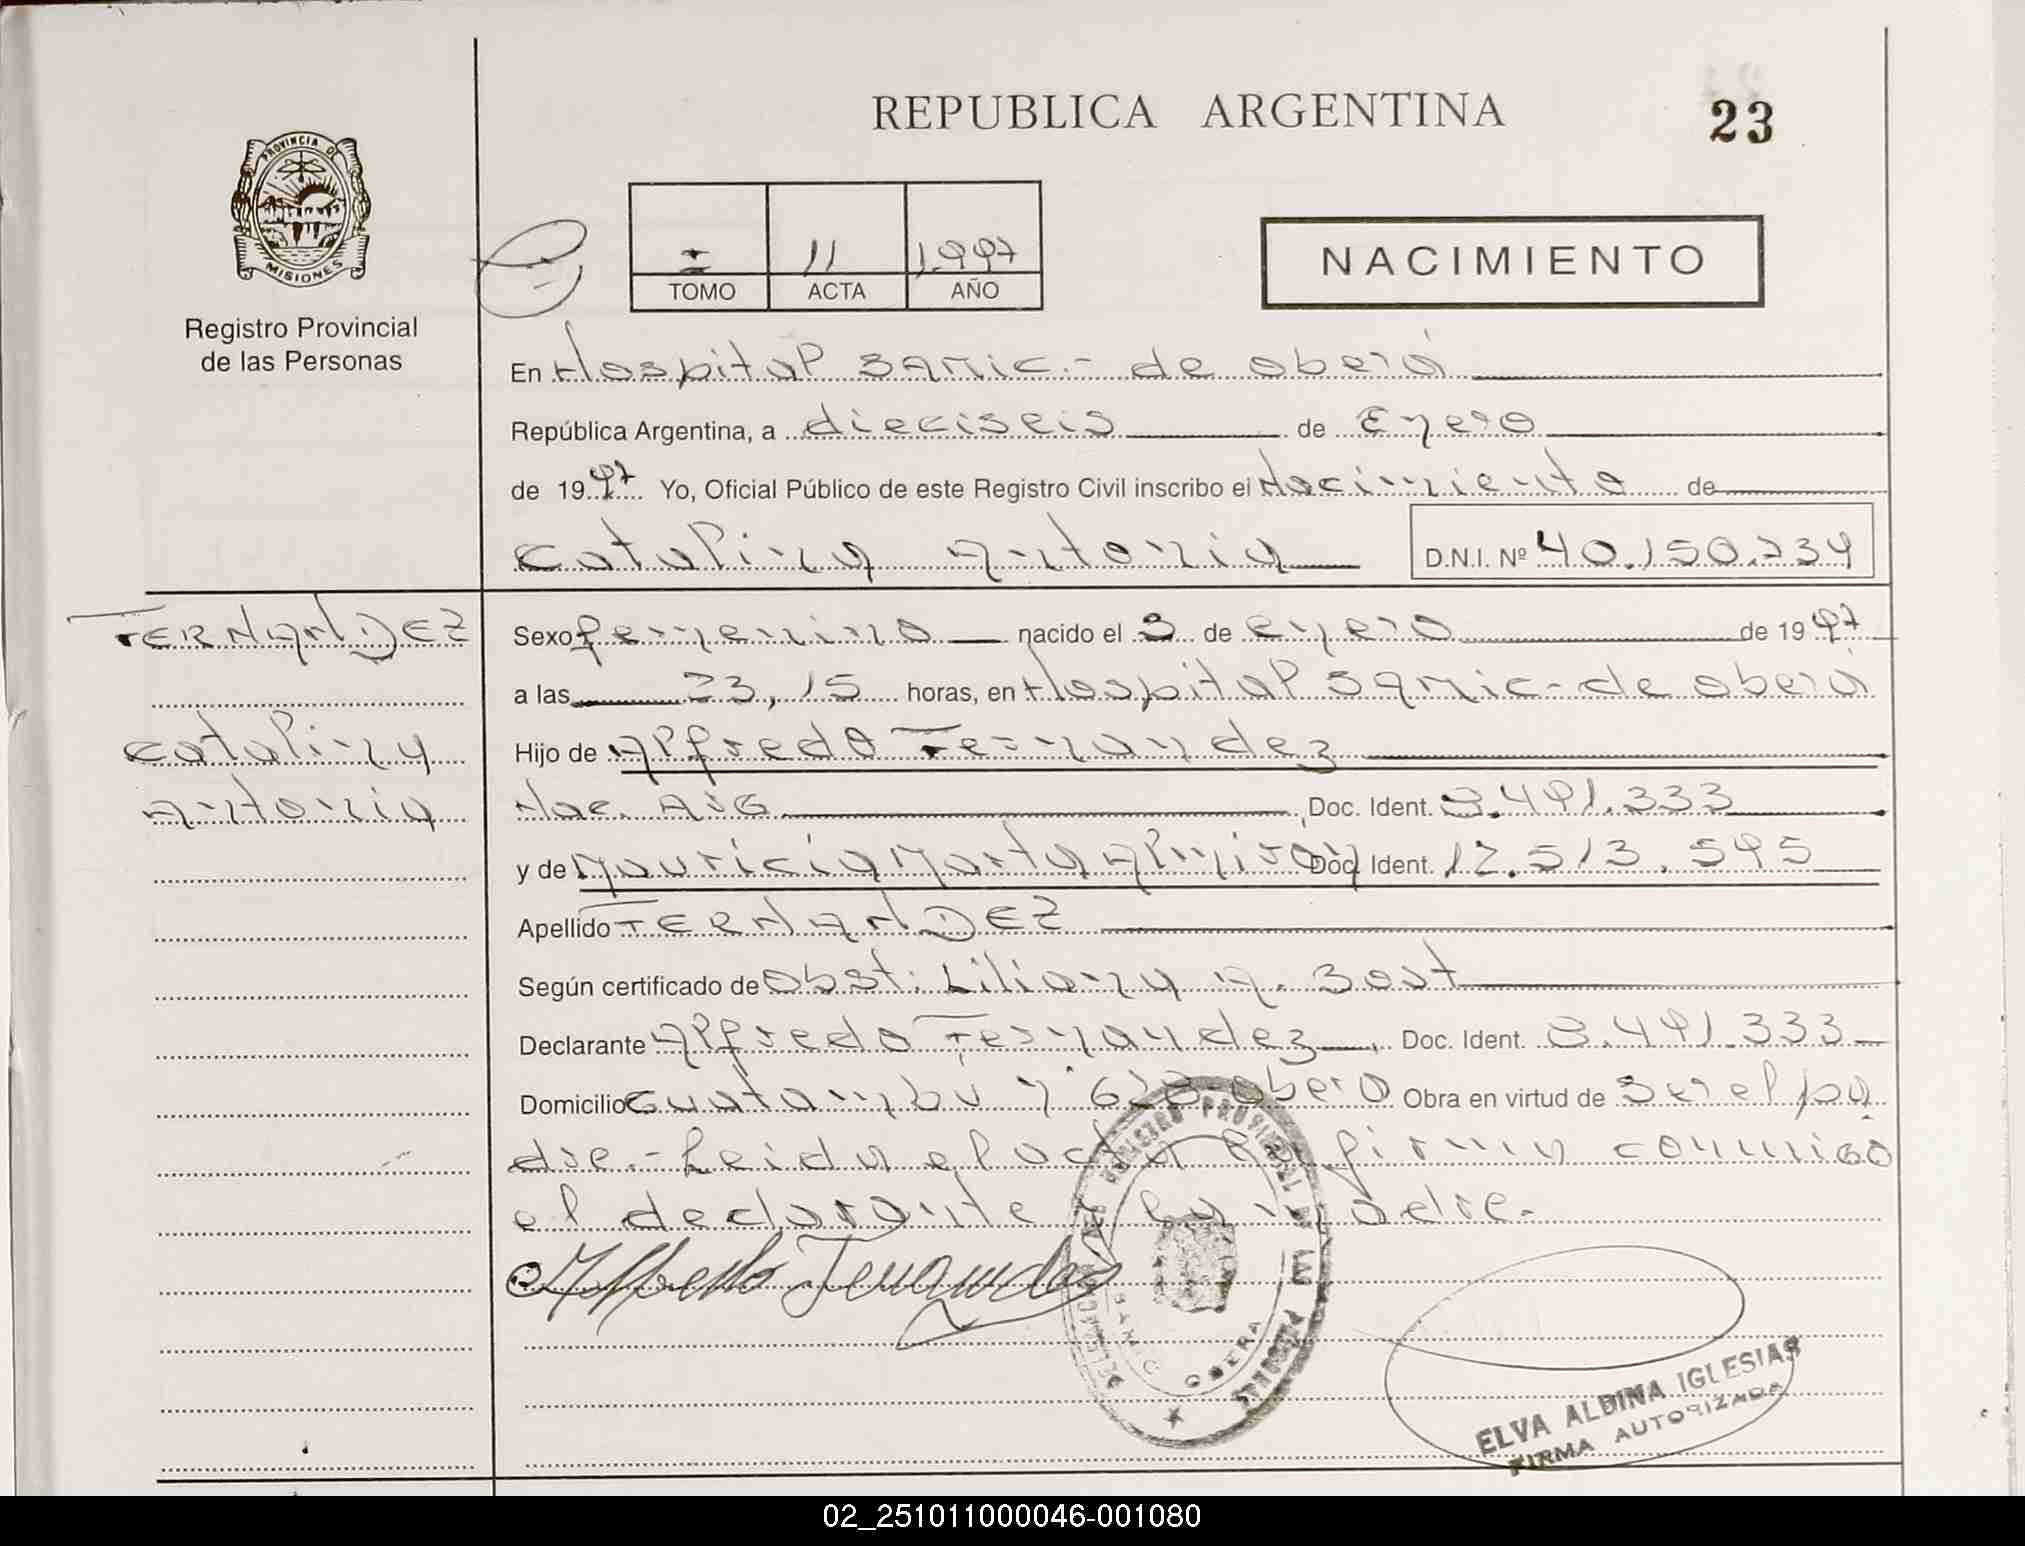 REPUBLICA ARGENTINA
23
PROVINCIA DE
MISIONES
Registro Provincial
de las Personas
I 11 1.997
TOMO ACTA AÑO
NACIMIENTO
En Hospital SAMIC.- de Oberá
República Argentina, a dieciseis de Enero
de 1997 Yo, Oficial Público de este Registro Civil inscribo el Nacimiento de
Catalina Antonia D.N.I. Nº 40.150.734
FERNANDEZ
Catalina
Antonia
Sexo femenino nacido el 3 de Enero de 1997
a las 23,15 horas, en Hospital SAMIC-de Oberá
Hijo de Alfredo Fernandez
Nac. ARG Doc. Ident. 8.491.333
y de Mauricia Marta Almiron Doc. Ident. 12.513.595
Apellido FERNANDEZ
Según certificado de Obst: Liliana A. Bost
Declarante Alfredo Fernandez Doc. Ident. 8.491.333
Domicilio Guatambu y 628-Oberá Obra en virtud de Ser el pa
dre.- Leida el acta la firman conmigo
el declarante y la madre.
Alfredo Fernandez
REGISTRO PROVINCIAL DE LAS PERSONAS
SAMIC OBERA
ELVA ALBINA IGLESIAS
FIRMA AUTORIZADA
02_251011000046-001080